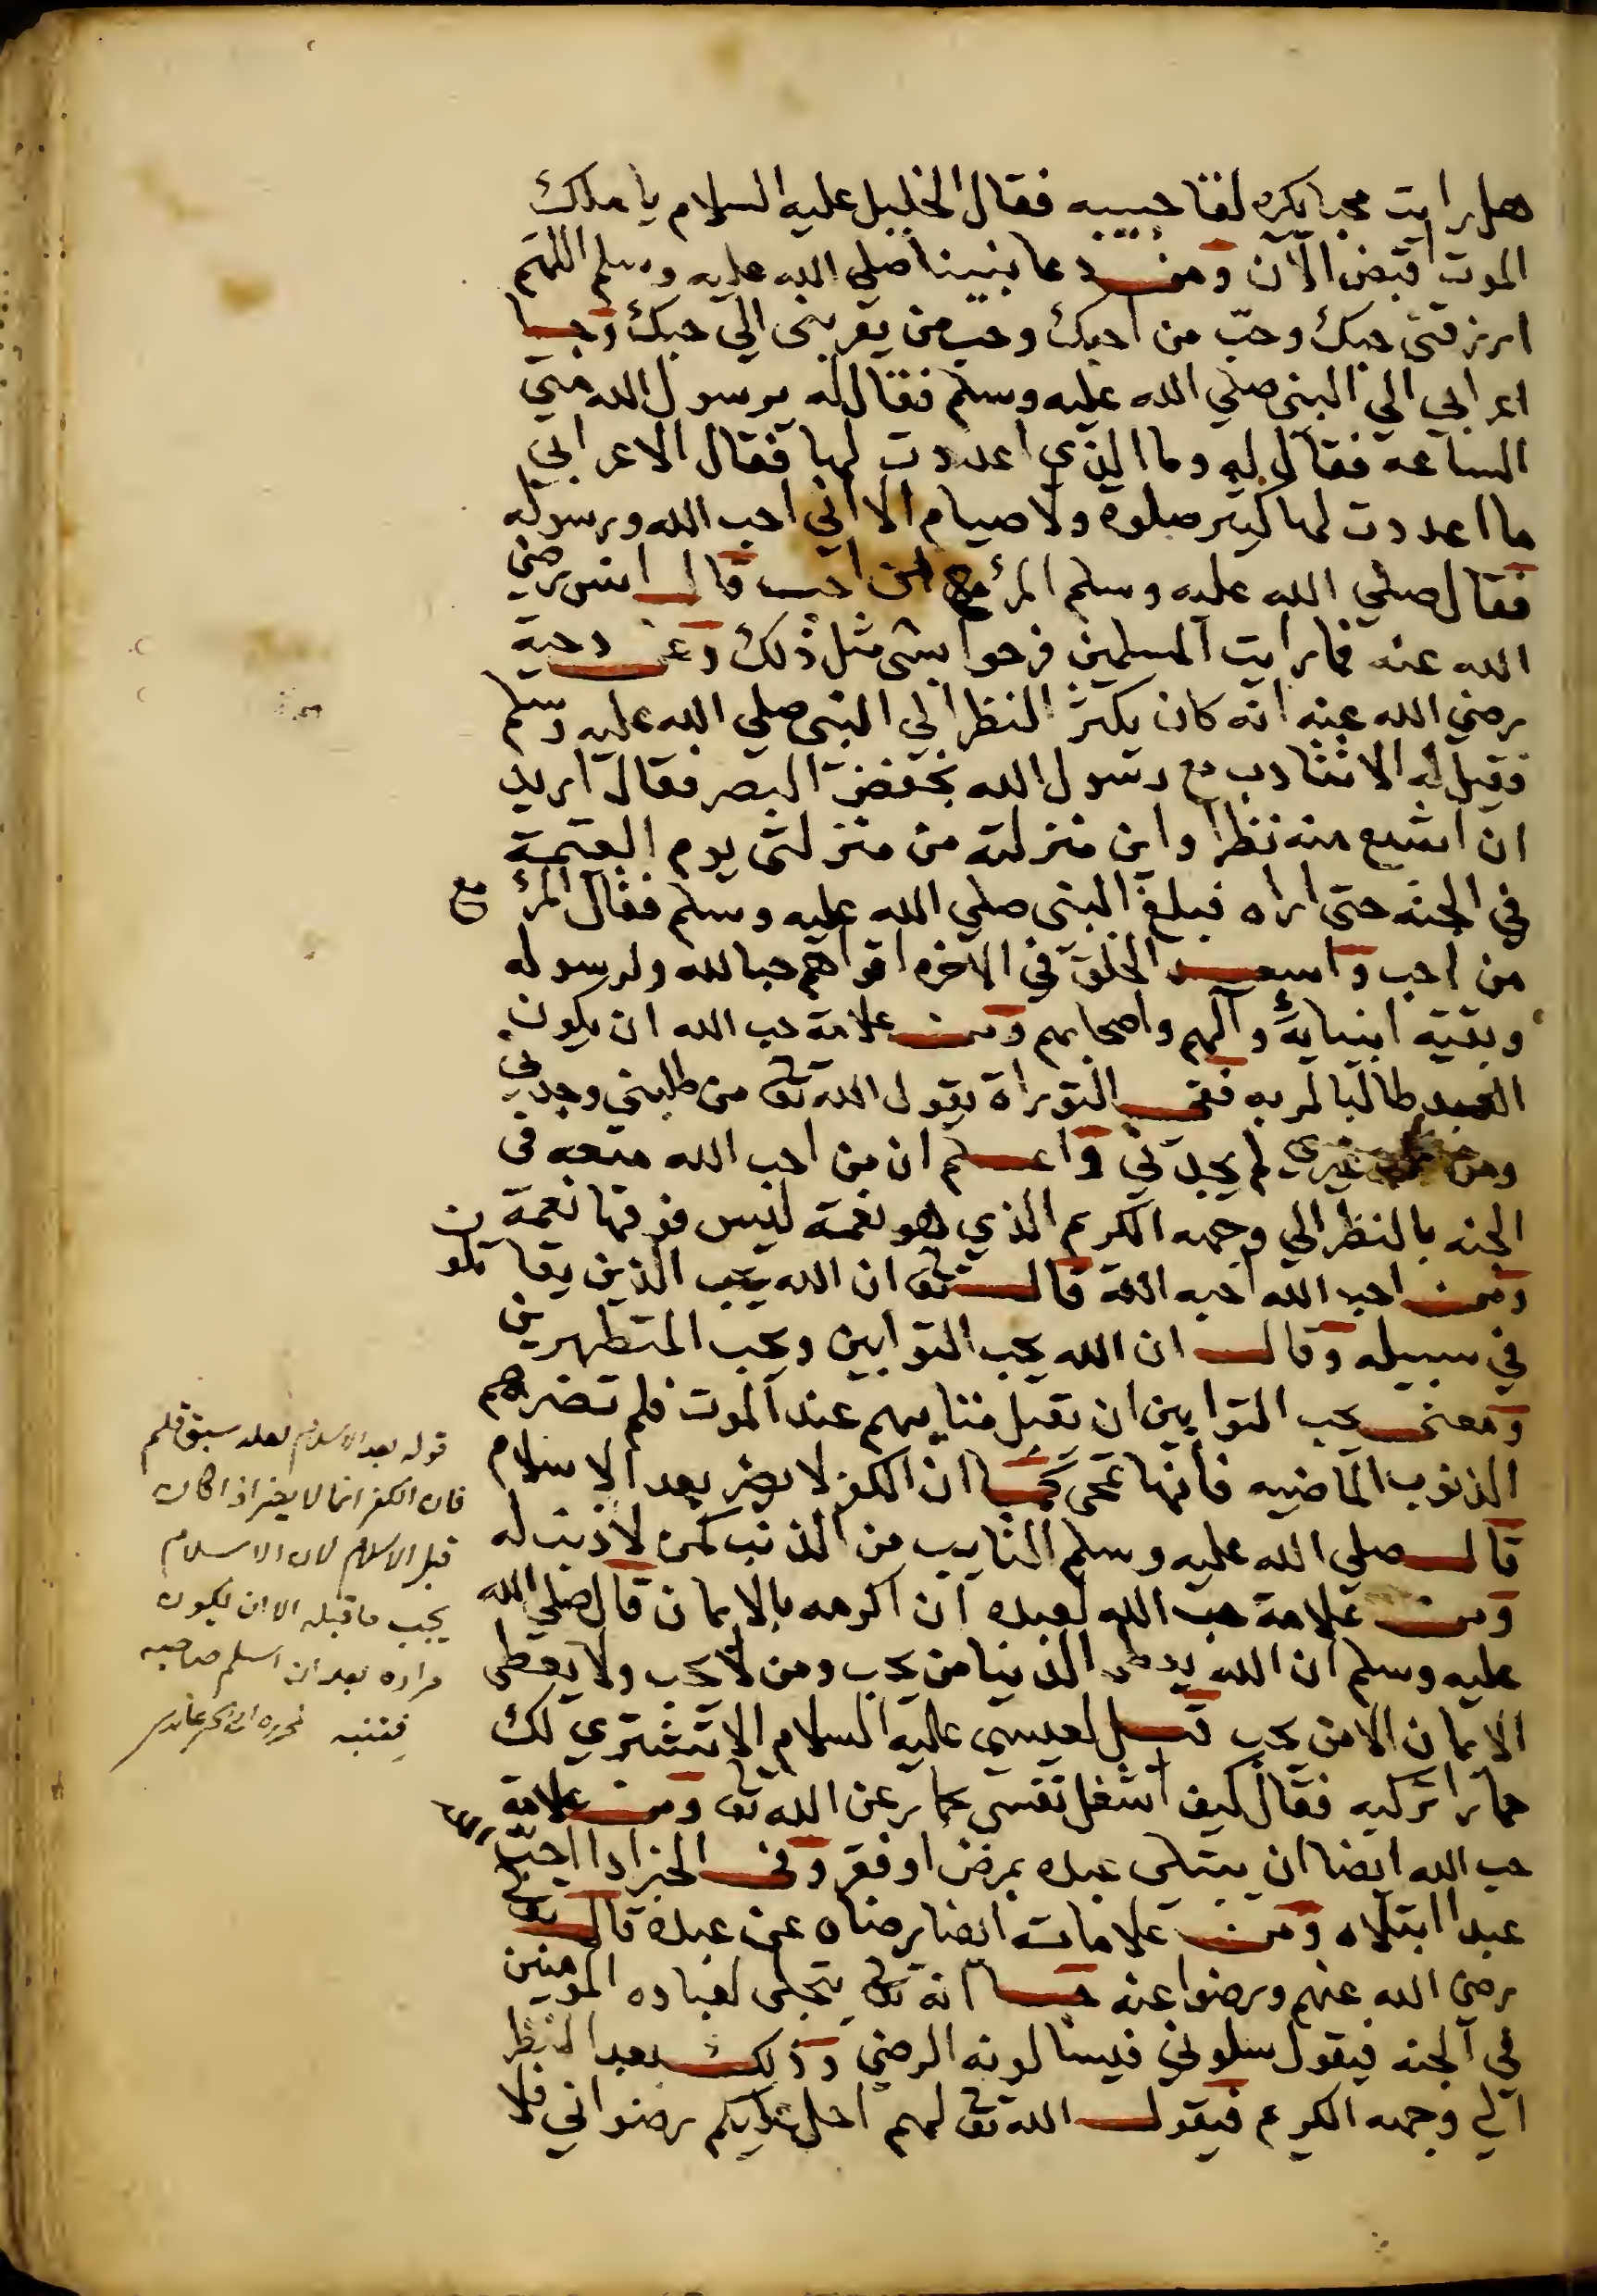 هل رايت محبا يكره لقا حبيبه فقال الخليل عليه السلام يا ملك
الموت اقبض الآن ومن دعا نبينا صلي الله عليه وسلم اللهم
ارزقني حبك وحبّ من احبك وحب من يقربني الي حبك وجا
اعرابي الي النبي صلي الله عليه وسلم فقال له يرسول الله متي
الساعه فقال له وما الذي اعددت لها فقال الاعرابي
ما اعددت لها كثير صلوة ولا صيام الا اني احب الله ورسوله
فقال صلي الله عليه وسلم المرء مع من احب قال انس رضي
الله عنه فما رايت المسلمين فرحوا بشي مثل ذلك وعن دحية
رضي الله عنه انه كان يكثر النظر الي النبي صلي الله عليه وسلم
فقيل له الا تتادب مع رسول الله بخفض البصر فقال اريد
ان اشبع منه نظرا واين منزلته من منزلتي يوم القيمة
في الجنه حتي اراه فبلغ النبي صلي الله عليه وسلم فقال المرء مع
من احب واسعد الخلق في الاخره اقواهم حبا لله ولرسوله
وبقية انبيايه وآلهم واصحابهم ومن علامة حب الله ان يكون
العبد طالبا لربه ففي التوراة يقول الله تع من طلبني وجدني
ومن غيري لم يجدني واعلم ان من احب الله متعه في
الجنه بالنظر الي وجهه الكريم الذي هو نعمة ليس فوقها نعمة
ومن احب الله احبه الله قال تع ان الله يحب الذين يقاتلون
في سبيله وقال ان الله يحب التوابين ويحب المتطهرين
ومعني يحب التوابين ان تقبل متابهم عند الموت فلم تضرهم
الذنوب الماضيه فانها تمحي كما ان الكفر لا يضر بعد الاسلام
قال صلي الله عليه وسلم التايب من الذنب كمن لا ذنب له
ومن علامة حب الله لعبده ان اكرمه بالايمان قال صلي الله
عليه وسلم ان الله يعطي الدنيا من يحب ومن لا يحب ولا يعطي
الايمان الا من يحب قيل لعيسي عليه السلام الا تشتري لك
حمارا تركبه فقال كيف اشغل نفسي بحمار عن الله تع ومن علامة
حب الله ايضا ان يبتلي عبده بمرض او فقر وفي الخبر اذا احبّ الله
عبدا ابتلاه ومن علامات ايضا رضاه عن عبده قال تع
رضي الله عنهم ورضوا عنه جا انه تع يتجلي لعباده المومنين
في الجنه فيقول سلوني فيسالونه الرضي وذلك بعد النظر
الي وجهه الكريم فيقول الله تع لهم احل عليكم رضواني فلا
قوله بعد الاسلام لعله سبق قلم
فان الكفر انما لا يضر اذا كان
قبل الاسلام لان الاسلام
يجب ما قبله الا ان يكون
مراده بعد ان اسلم صاحبه
فتنبه